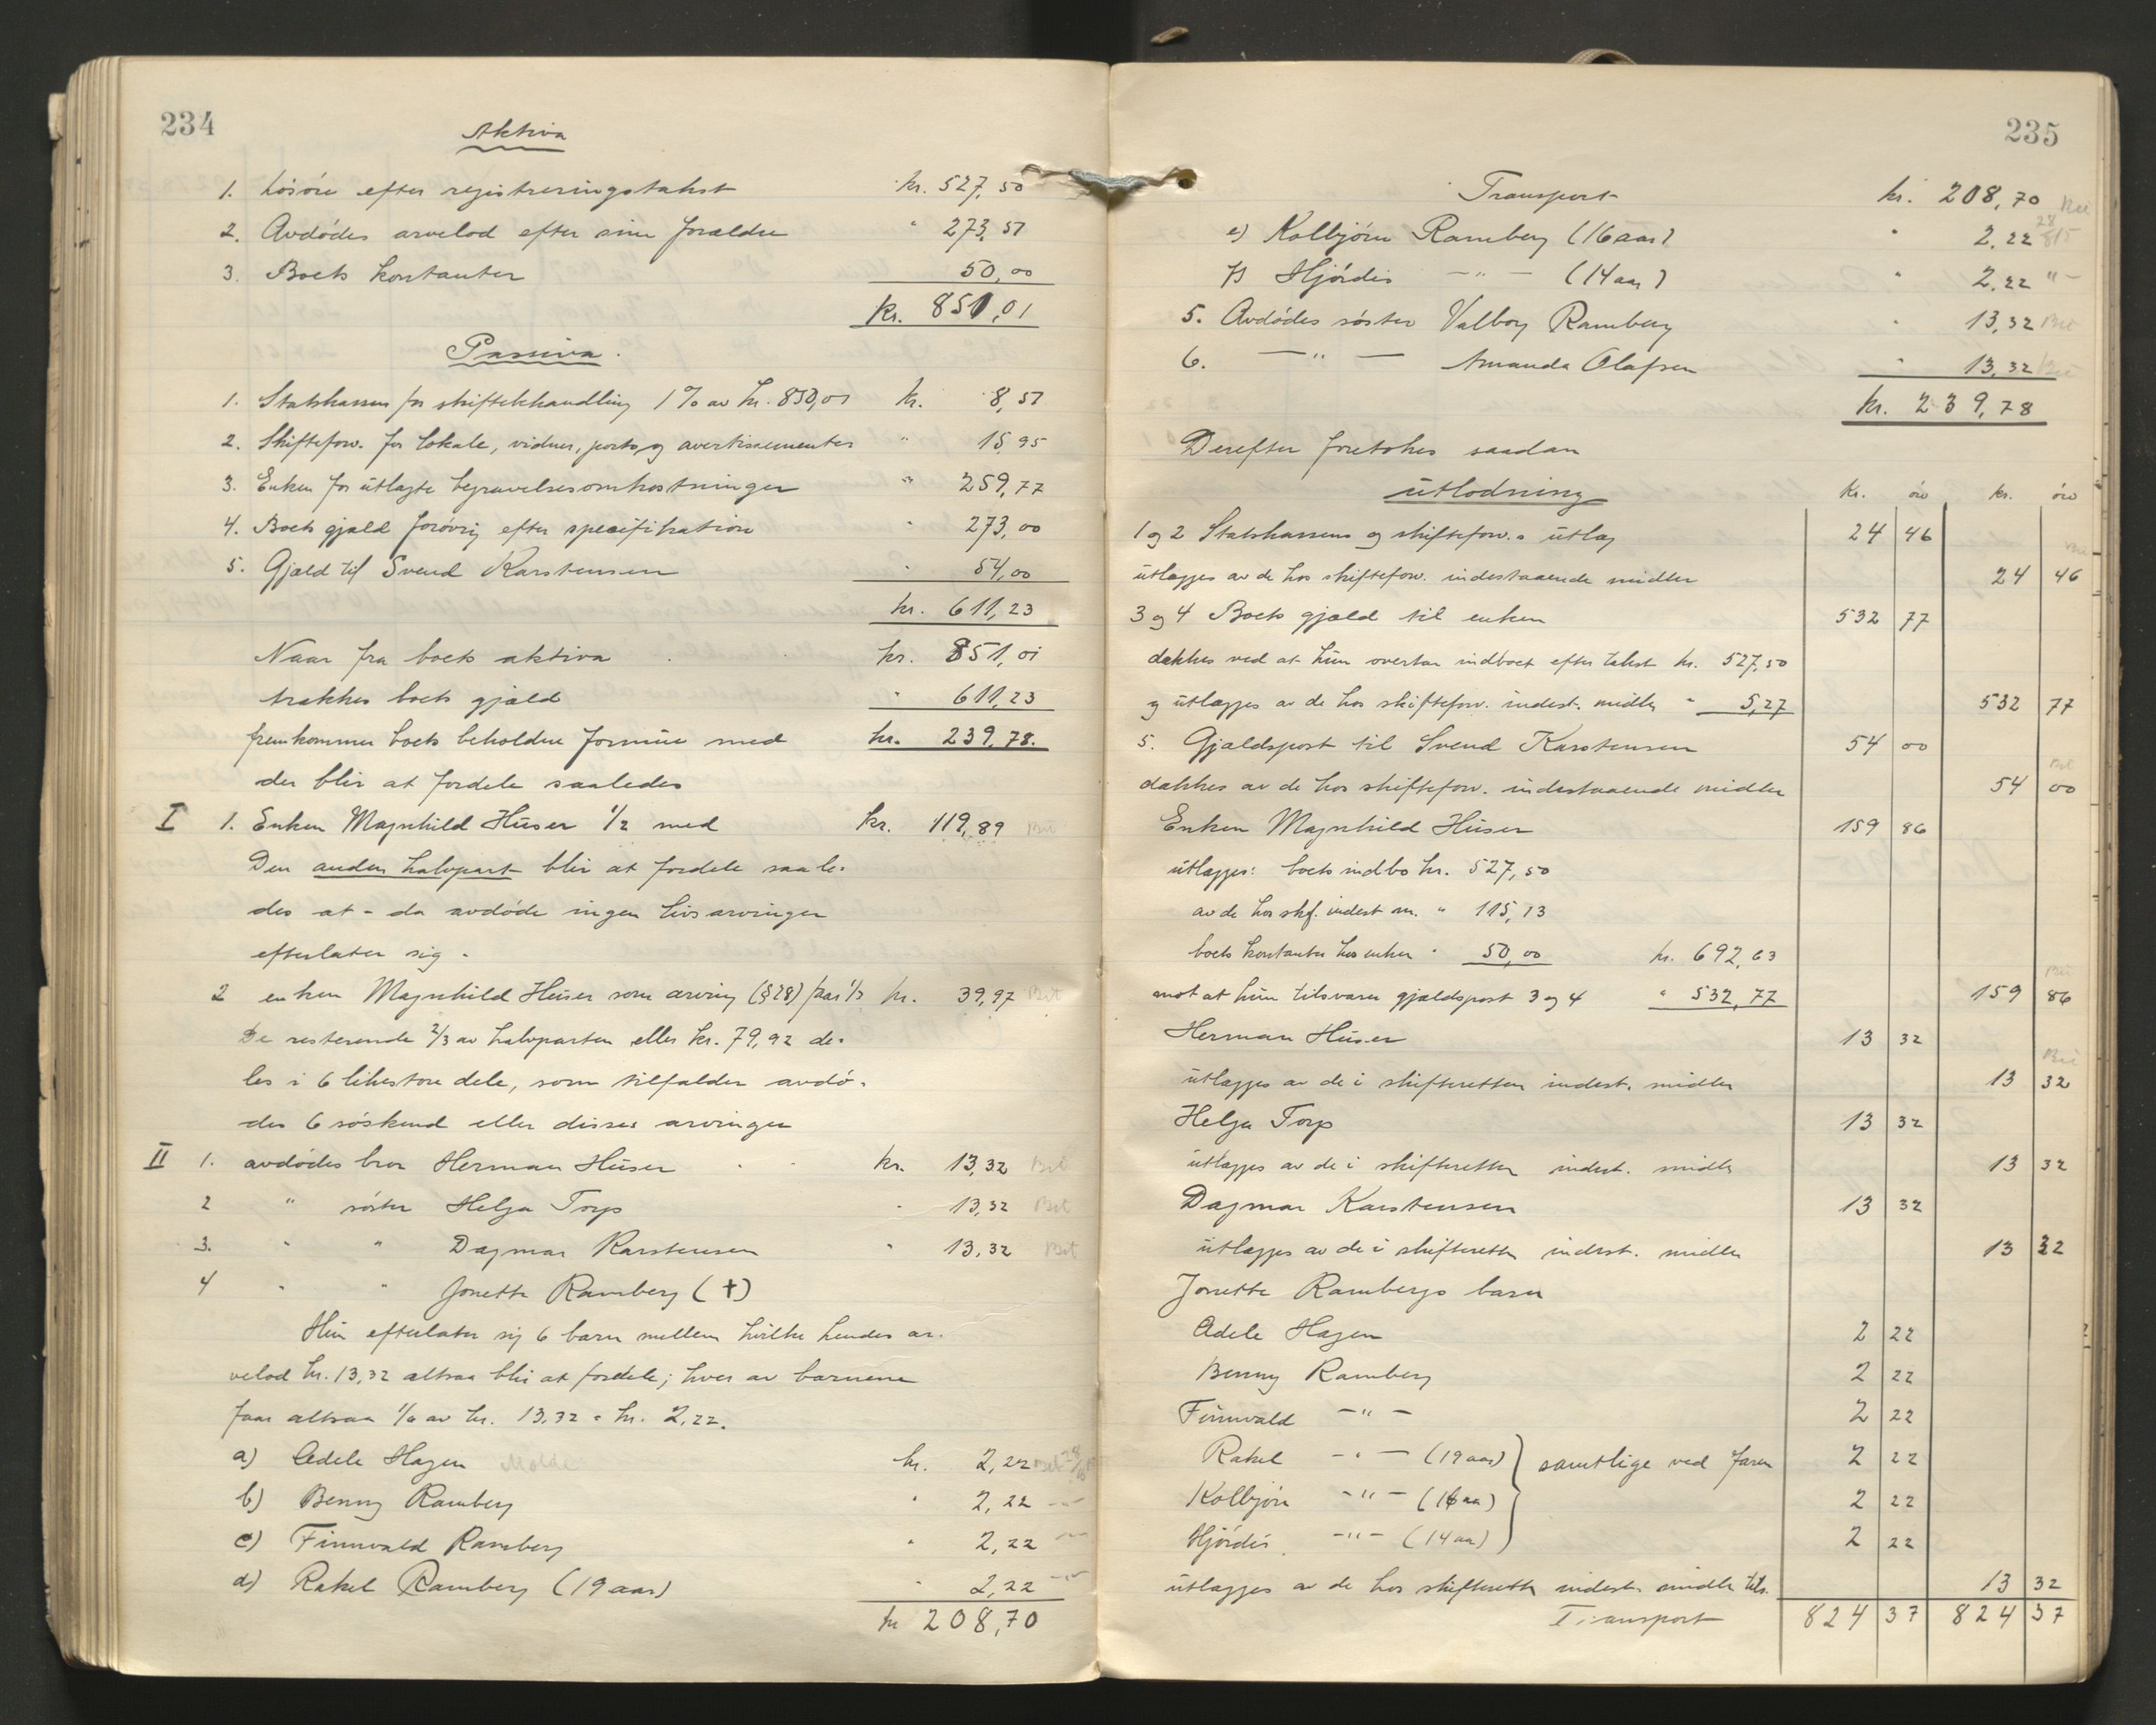 234
Aktiva
1. Løsøre efter registreringstakst kr. 527,50
2. Avdødes arvelod efter sine forældre " 273,51
3. Boets kontanter 50,00
kr. 851,01
Passiva.
1. Statskassen for skiftebehandling 1% av kr. 850,01 kr. 8,51
2. Skifteforv. for lokale, vidner, porto og avertissementer " 15,95
3. Enken for utlagte begravelsesomkostninger " 259,77
4. Boets gjæld forøvrig efter specifikation " 273,00
5. Gjæld til Svend Karstensen " 54,00
kr. 611,23
Naar fra boets aktiva kr. 851,01
trækkes boets gjæld " 611,23
fremkommer boets beholdne formue med kr. 239,78.
der blir at fordele saaledes
I 1. Enken Magnhild Huser 1/2 med kr. 119,89 Bet
Den anden halvpart blir at fordele saale-
des at - da avdøde ingen livsarvinger
efterlater sig -
2 enken Magnhild Huser som arving (§28) faar 1/3 kr. 39,97 Bet
De resterende 2/3 av halvparten eller kr. 79,92 de-
les i 6 likestore dele, som tilfalder avdø-
des 6 søskend eller disses arvinger
II 1. avdødes bror Herman Huser kr. 13,32 Bet
2 " søster Helga Torp " 13,32 Bet
3. " " Dagmar Karstensen " 13,32 Bet
4 " " Jonette Ramberg (†)
Hun efterlater sig 6 barn mellem hvilke hendes ar-
velod kr. 13,32 altsaa blir at fordele; hver av barnene
faar altsaa 1/6 av kr. 13,32 = kr. 2,22.
a) Adele Hagen Molde kr. 2,22 Bet
b) Benny Ramberg " 2,22 -"-
c) Finnvald Ramberg " 2,22 -"-
d) Rakel Ramberg (19 aar) " 2,22 -"-
kr 208,70
235
Transport kr. 208,70
e) Kolbjørn Ramberg (16 aar) " 2,22
f) Hjørdis -"- (14 aar) " 2,22 "-
5. Avdødes søster Valborg Ramberg " 13,32 Bet
6. -"- Amanda Olafsen " 13,32 Bet
kr. 239,78
Derefter foretokes saadan
utlodning
kr. øre kr. øre
1 og 2 Statskassens og skifteforv.s utlæg 24 46
utlægges av de hos skifteforv. indestaaende midler 24 46
3 og 4 Boets gjæld til enken 532 77
dækkes ved at hun overtar indboet efter takst kr. 527,50
og utlægges av de hos skifteforv. indest. midler " 5,27 532 77
5. Gjældspost til Svend Karstensen 54 00
dækkes av de hos skifteforv. indestaaende midler 54 00
Enken Magnhild Huser 159 86
utlægges: boets indbo kr. 527,50
av de hos skf. indest m. " 115,13
boets kontanter hos enken " 50,00 kr. 692,63
mot at hun tilsvarer gjældspost 3 og 4 " 532,77 159 86
Herman Huser 13 32
utlægges av de i skifteretten indest. midler 13 32
Helga Torp 13 32
utlægges av de i skifteretten indest. midler 13 32
Dagmar Karstensen 13 32
utlægges av de i skifteretten indest. midler 13 32
Jonette Rambergs barn
Adele Hagen 2 22
Benny Ramberg 2 22
Finnvald -"- 2 22
Rakel -"- (19 aar) } samtlige ved faren 2 22
Kolbjørn -"- (16 aar) 2 22
Hjørdis -"- (14 aar) 2 22
utlægges av de hos skifteretten indest. midler tils. 13 32
Transport 824 37 824 37